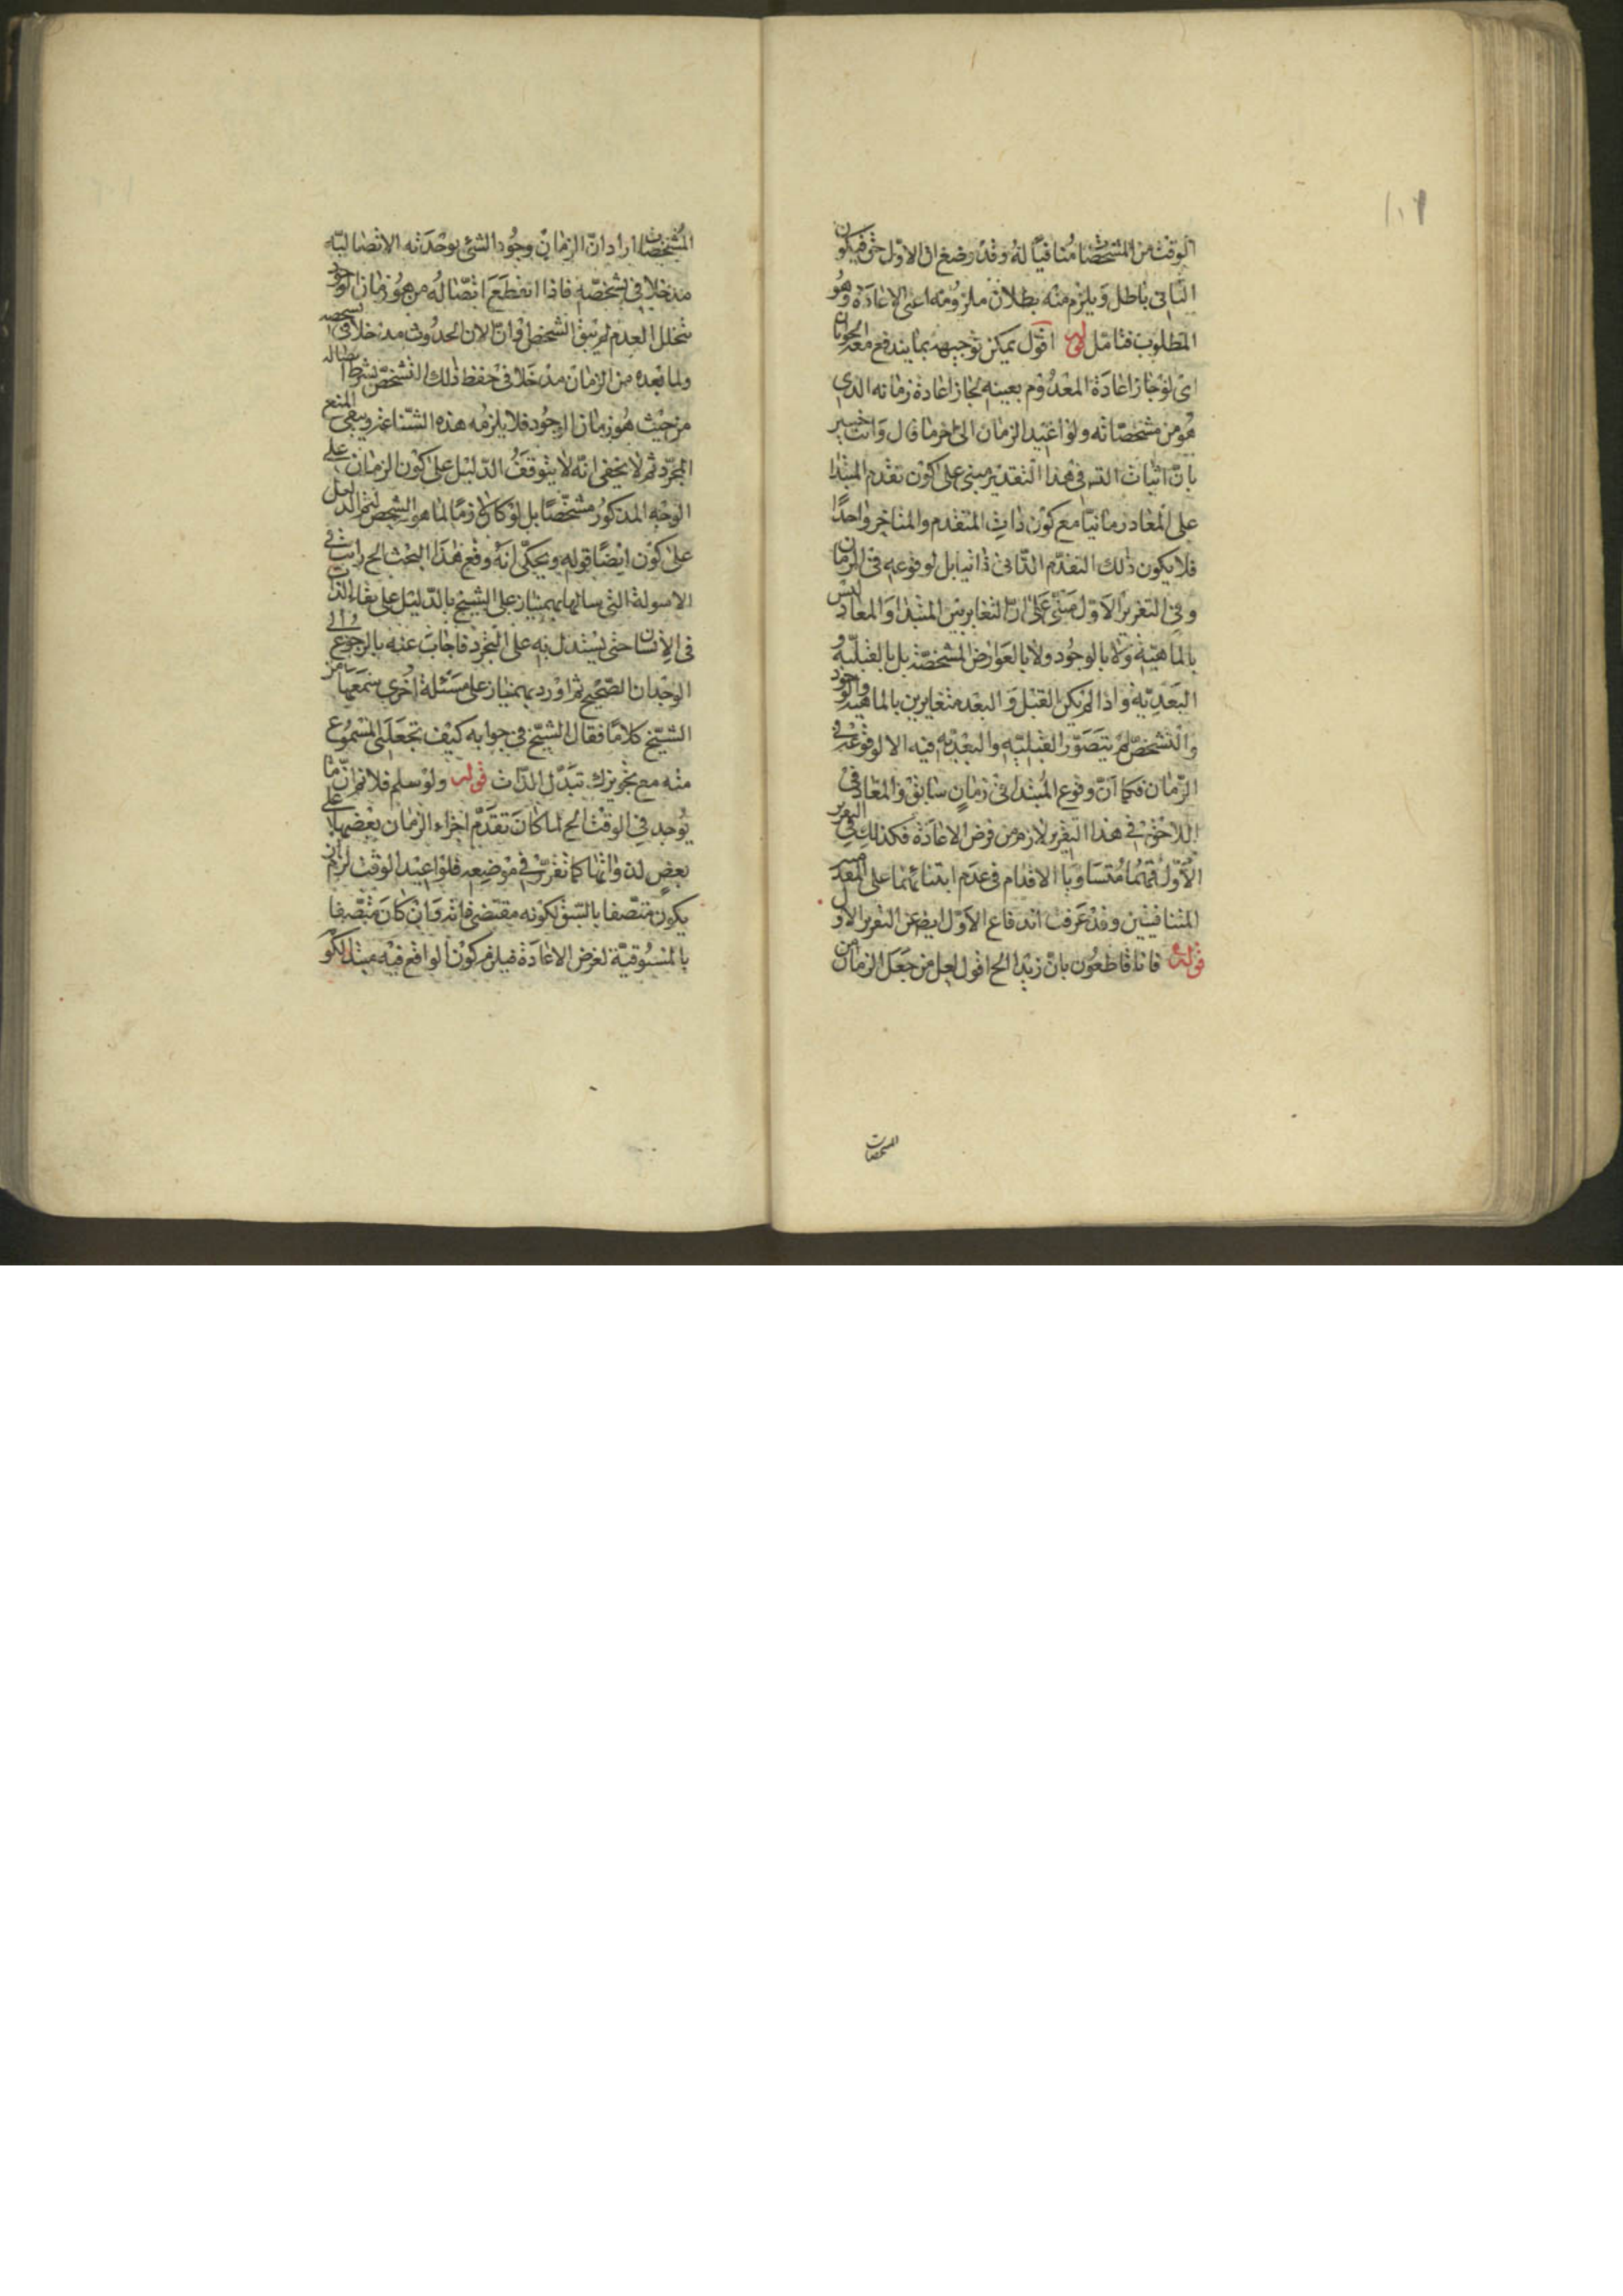 ١٠٩
الوقت من المشخصات منافيا له وقد وضع ان الاول حق فيكون
الثانى باطل ويلزم منه بطلان ملزومه اعنى الاعادة وهو
المطلوب فتامل قوله اقول يمكن توجيهه بما يندفع معه
اى لو جاز اعادة المعدوم بعينه لجاز اعادة زمانه الذى
هو من مشخصاته ولو اعيد الزمان الى اخر ما قال وانت خبير
بان اثبات فى هذا التقدير مبنى على كون تقدم المبتدا
على المعاد زمانيا مع كون ذات المتقدم والمتاخر واحدا
فلا يكون ذلك التقدم الذاتى ذاتيا بل لوقوعه فى الزمان
وفى التقرير الاول مبنى على ان التغاير بين المبتدا والمعاد ليس
بالماهية ولا بالوجود ولا بالعوارض المشخصة بل بالقبلية و
البعدية واذا لم يكن القبل والبعد متغايرين بالماهية والوجود
والتشخص لم يتصور القبلية والبعدية فيه الا لوقوعه فى
الزمان فكما ان وقوع المبتدا فى زمان سابق والمعاد فى
اللاحق فى هذا التقرير لازم من فرض الاعادة فكذلك فى التقرير
الاول فهما متساويا الاقدام فى عدم ابتنائهما على
المتنافيين وقد عرفت اندفاع الاول ايضا عن التقرير الاول
قوله فانا قاطعون بان زيدا الخ اقول لعل من جعل الزمان من
المشخصات
المشخصات اراد ان الزمان وجود الشئ بوحدته الاتصالية
مدخلا فى تشخصه فاذا انقطع اتصاله من هو زمان الوجود
بتخلل العدم لم يبق الشخص او ان لان الحدوث مدخلا فى تشخصه
ولما بعده من الزمان مدخلا فى حفظ ذلك التشخص بشرط اتصاله
من حيث هو زمان الوجود فلا يلزمه هذه الشناعة ويبقى المنع
المجرد ثم لا يخفى انه لا يتوقف الدليل على كون الزمان على
الوجه المذكور مشخصا بل لو كان لازما لما هو الشخص لتم الدليل
على كون ايضا قوله ويحكى انه وقع هذا البحث الخ رايت فى
الاسولة التى سالها بهمنيار على الشيخ بالدليل على بقاء الذات
فى الانسان حتى يستدل به على التجرد فاجاب عنه بالرجوع الى
الوجدان الصحيح ثم اورد بهمنيار على مسئلة اخرى سمعها من
الشيخ كلاما فقال الشيخ فى جوابه كيف تجعلنى المسموع
منه مع تجويزك تبدل الذات قوله ولو سلم فلا نم ان ما
يوجد فى الوقت الخ لما كان تقدم اجزاء الزمان بعضها على
بعض لذواتها كما تقرر فى موضعه فلو اعيد الوقت لزم ان
يكون متصفا بالسبق لكونه مقتضى ذاته وان كان متصفا
بالمسبوقية لفرض الاعادة فيلزم كون الواقع فيه مبتدا لكو